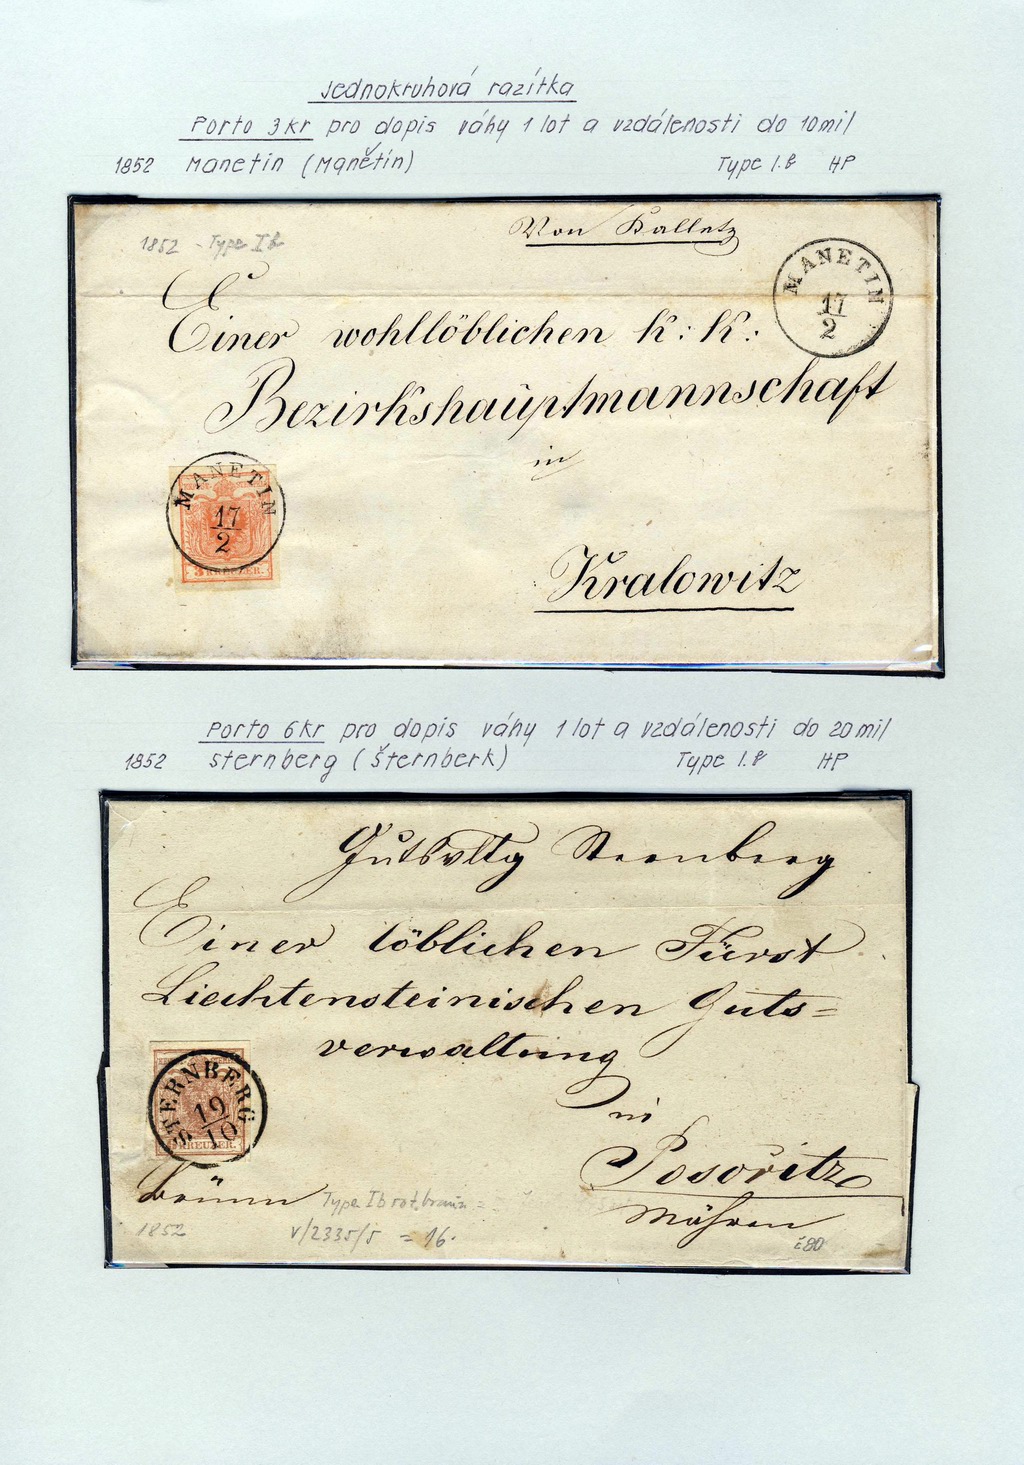 Jednokruhová razítka
Porto 3kr pro dopis váhy 1 lot a vzdálenosti do 10 mil
1852 Manetin (Manětín) Type I.b HP
Von Kalletz
1852 - Type Ib
MANETIN
17/2
Einer wohllöblichen k: k:
Bezirkshauptmannschaft
in
MANETIN
17/2
3 KREUZER.
Kralowitz
Porto 6kr pro dopis váhy 1 lot a vzdálenosti do 20 mil
1852 Sternberg (Šternberk) Type I.b HP
Gutsvltg Sternberg
Einer löblichen Fürst
Liechtensteinischen Guts=
verwaltung
STERNBERG
19/10
KREUZER.
in
Posoritz
Brünn
Type Ib rotbraun =
Mähren
1852
V/2335/5 = 16.
č80